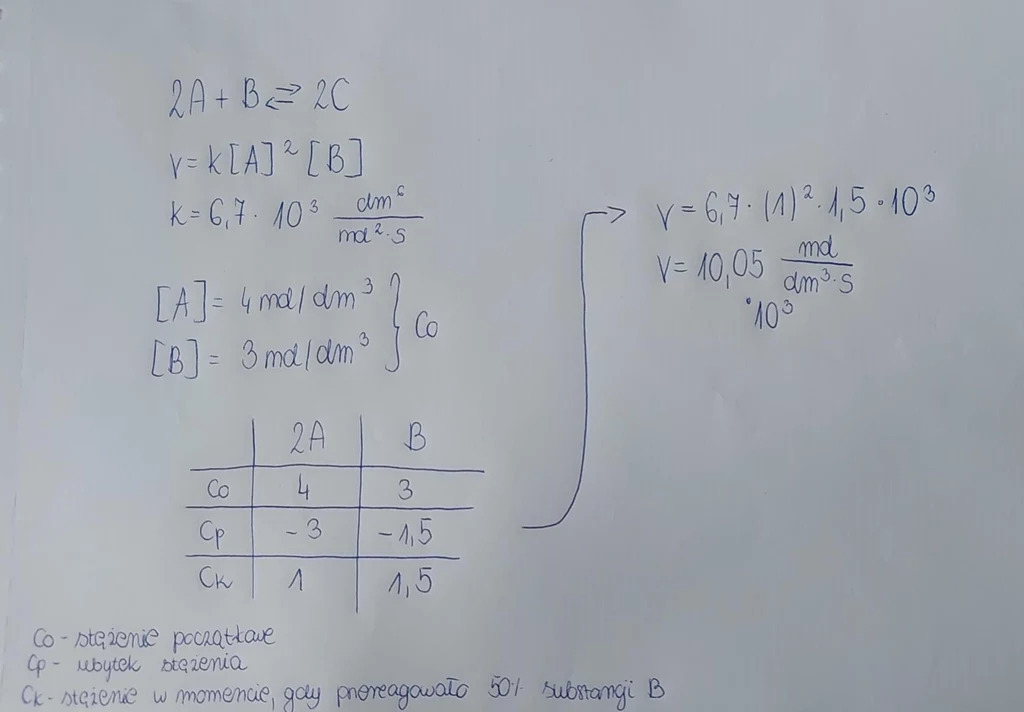 2A + B ⇄ 2C
v = k[A]² [B]
k = 6,7 · 10³ dm⁶/mol²·s
[A] = 4 mol/dm³
[B] = 3 mol/dm³ } Co
2A B
Co 4 3
Cp -3 -1,5
Ck 1 1,5
→ v = 6,7 · (1)² · 1,5 · 10³
v = 10,05 mol/dm³·s
·10³
Co - stężenie początkowe
Cp - ubytek stężenia
Ck - stężenie w momencie, gdy przereagowało 50% substancji B